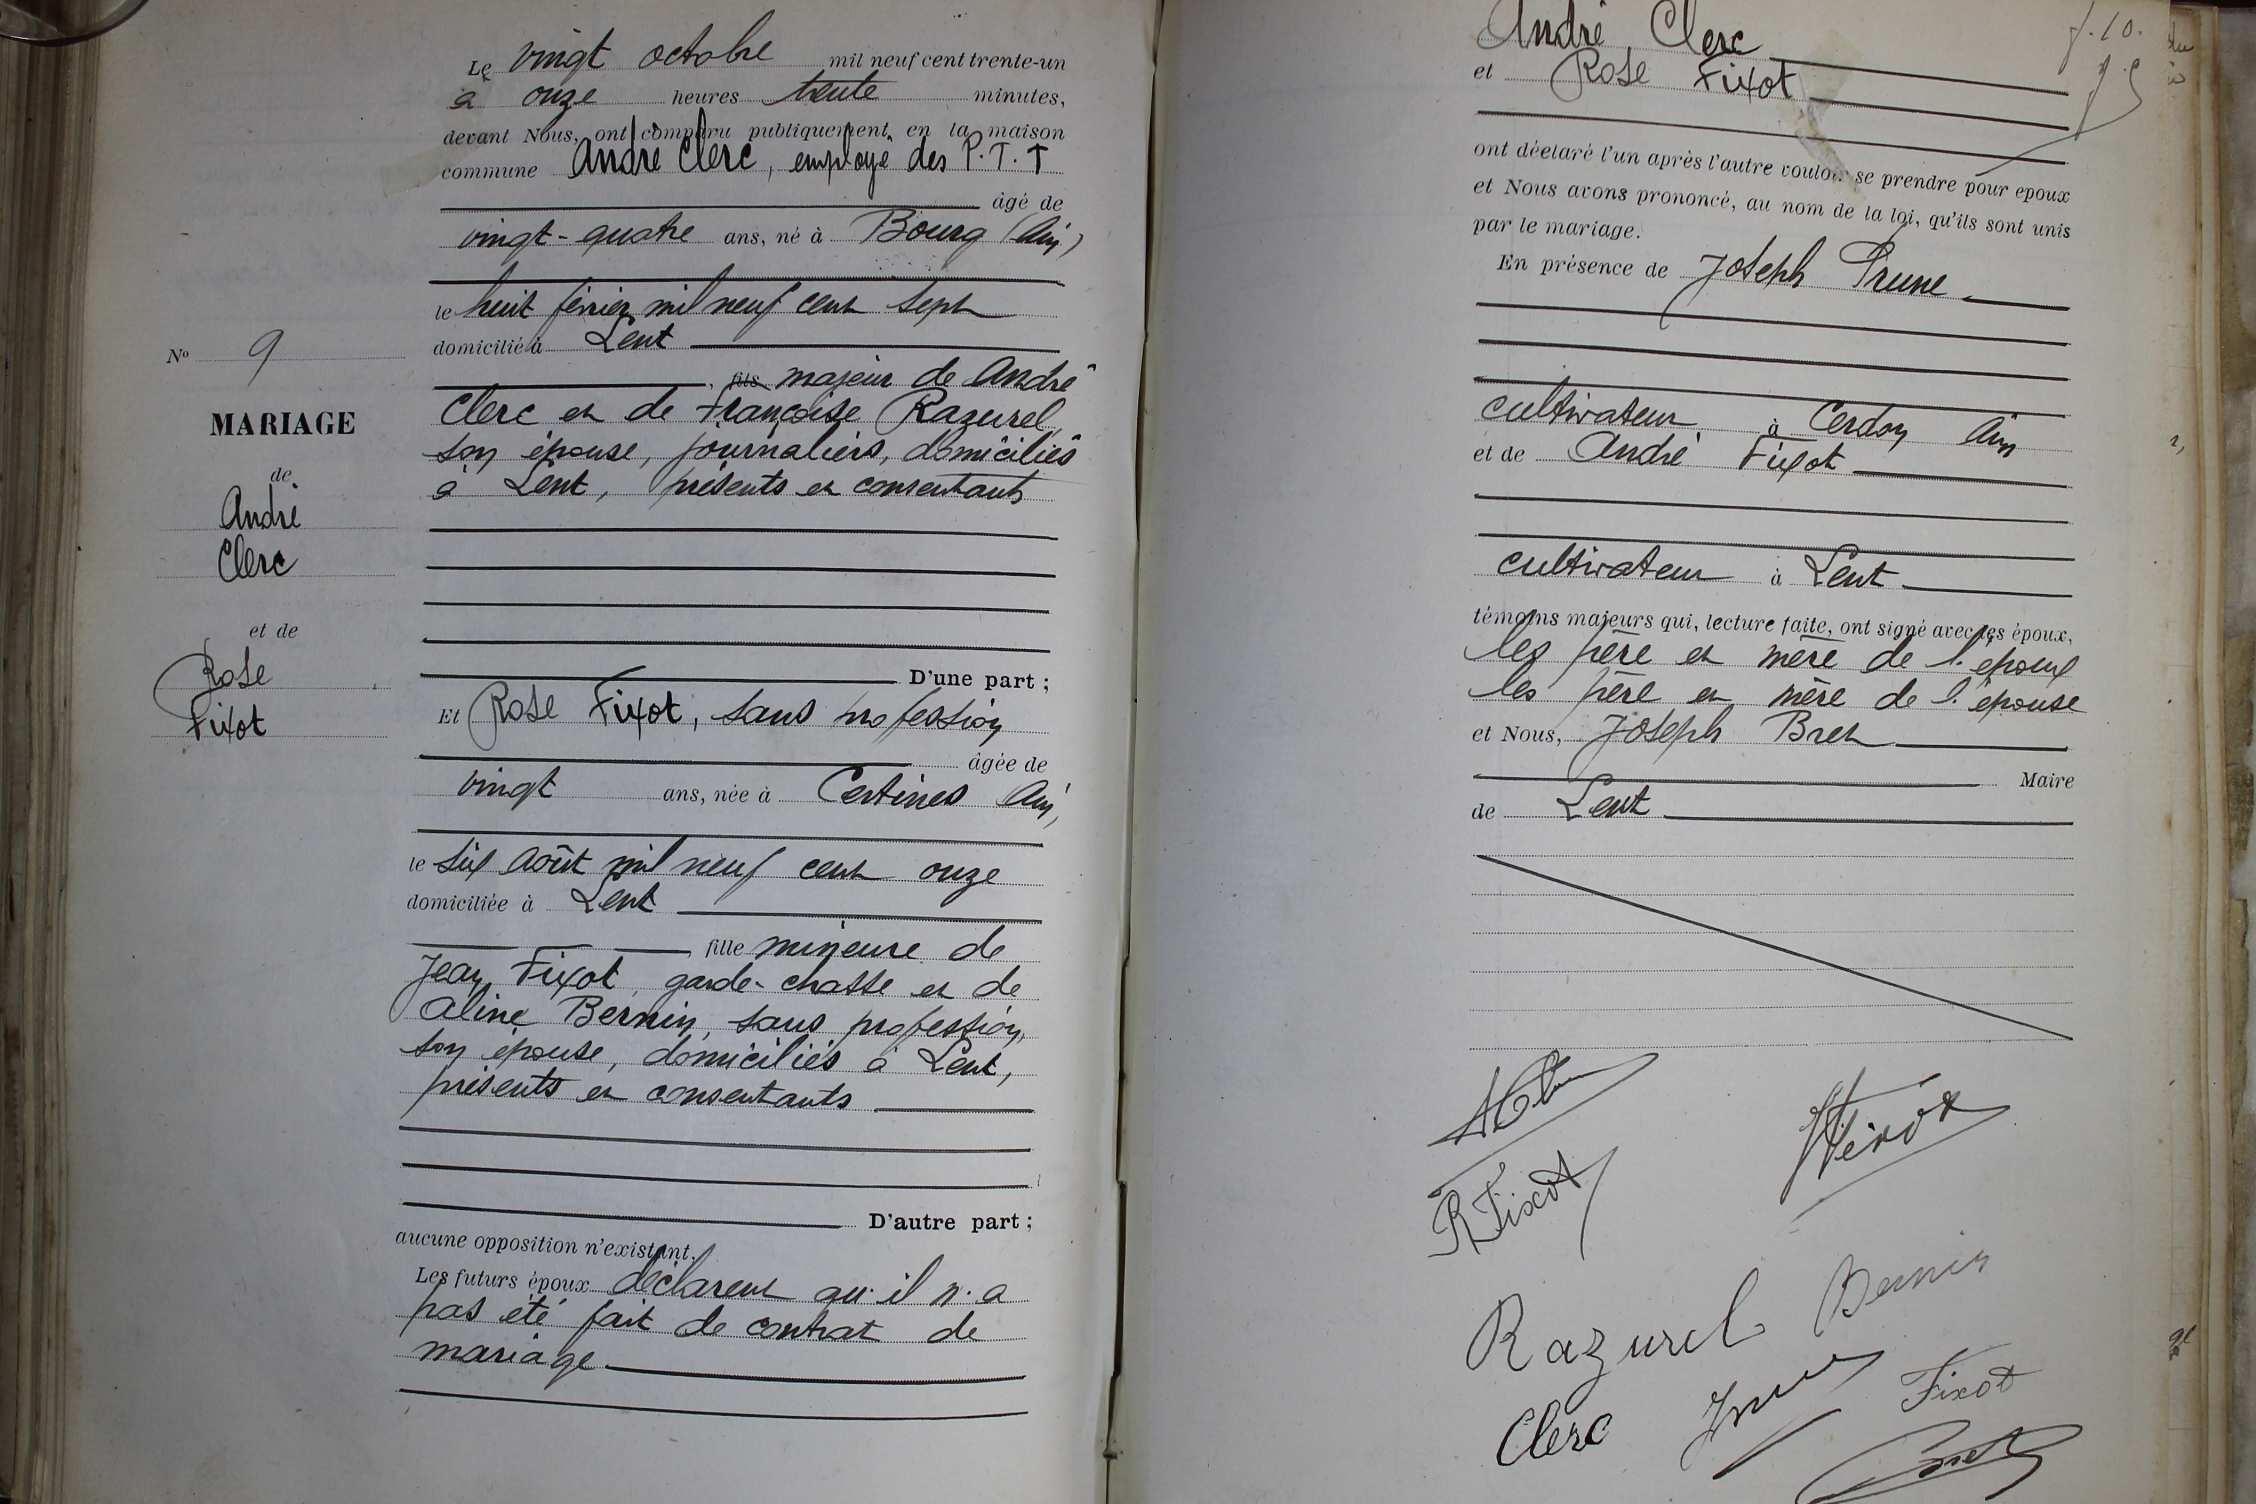 Le vingt octobre mil neuf cent trente-un
à onze heures trente minutes,
devant Nous, ont comparu publiquement en la maison
commune André Clerc, employé des P.T.T
âgé de
vingt-quatre ans, né à Bourg (Ain)
le huit février mil neuf cent sept
domicilié à Lent
fils majeur de André
Clerc et de Françoise Razurel,
son épouse, journaliers, domiciliés
à Lent, présents et consentants
No 9
MARIAGE
de
André
Clerc
et de
Rose
Fixot
D'une part ;
Et Rose Fixot, sans profession
âgée de
vingt ans, née à Certines Ain,
le six août mil neuf cent onze
domiciliée à Lent
fille mineure de
Jean Fixot, garde-chasse et de
Aline Bernin, sans profession,
son épouse, domiciliés à Lent,
présents et consentants
D'autre part ;
aucune opposition n'existant.
Les futurs époux déclarent qu'il n'a
pas été fait de contrat de
mariage
André Clerc
et Rose Fixot
f. 10.
ont déclaré l'un après l'autre vouloir se prendre pour epoux
et Nous avons prononcé, au nom de la loi, qu'ils sont unis
par le mariage.
En présence de Joseph Prune
cultivateur à Cerdon Ain
et de André Fixot
cultivateur à Lent
témoins majeurs qui, lecture faite, ont signé avec les époux,
les père et mère de l'époux
les père et mère de l'épouse
et Nous, Joseph Bret
Maire
de Lent
R Fixot
Razurel Bernin
Clerc Fixot
Bret